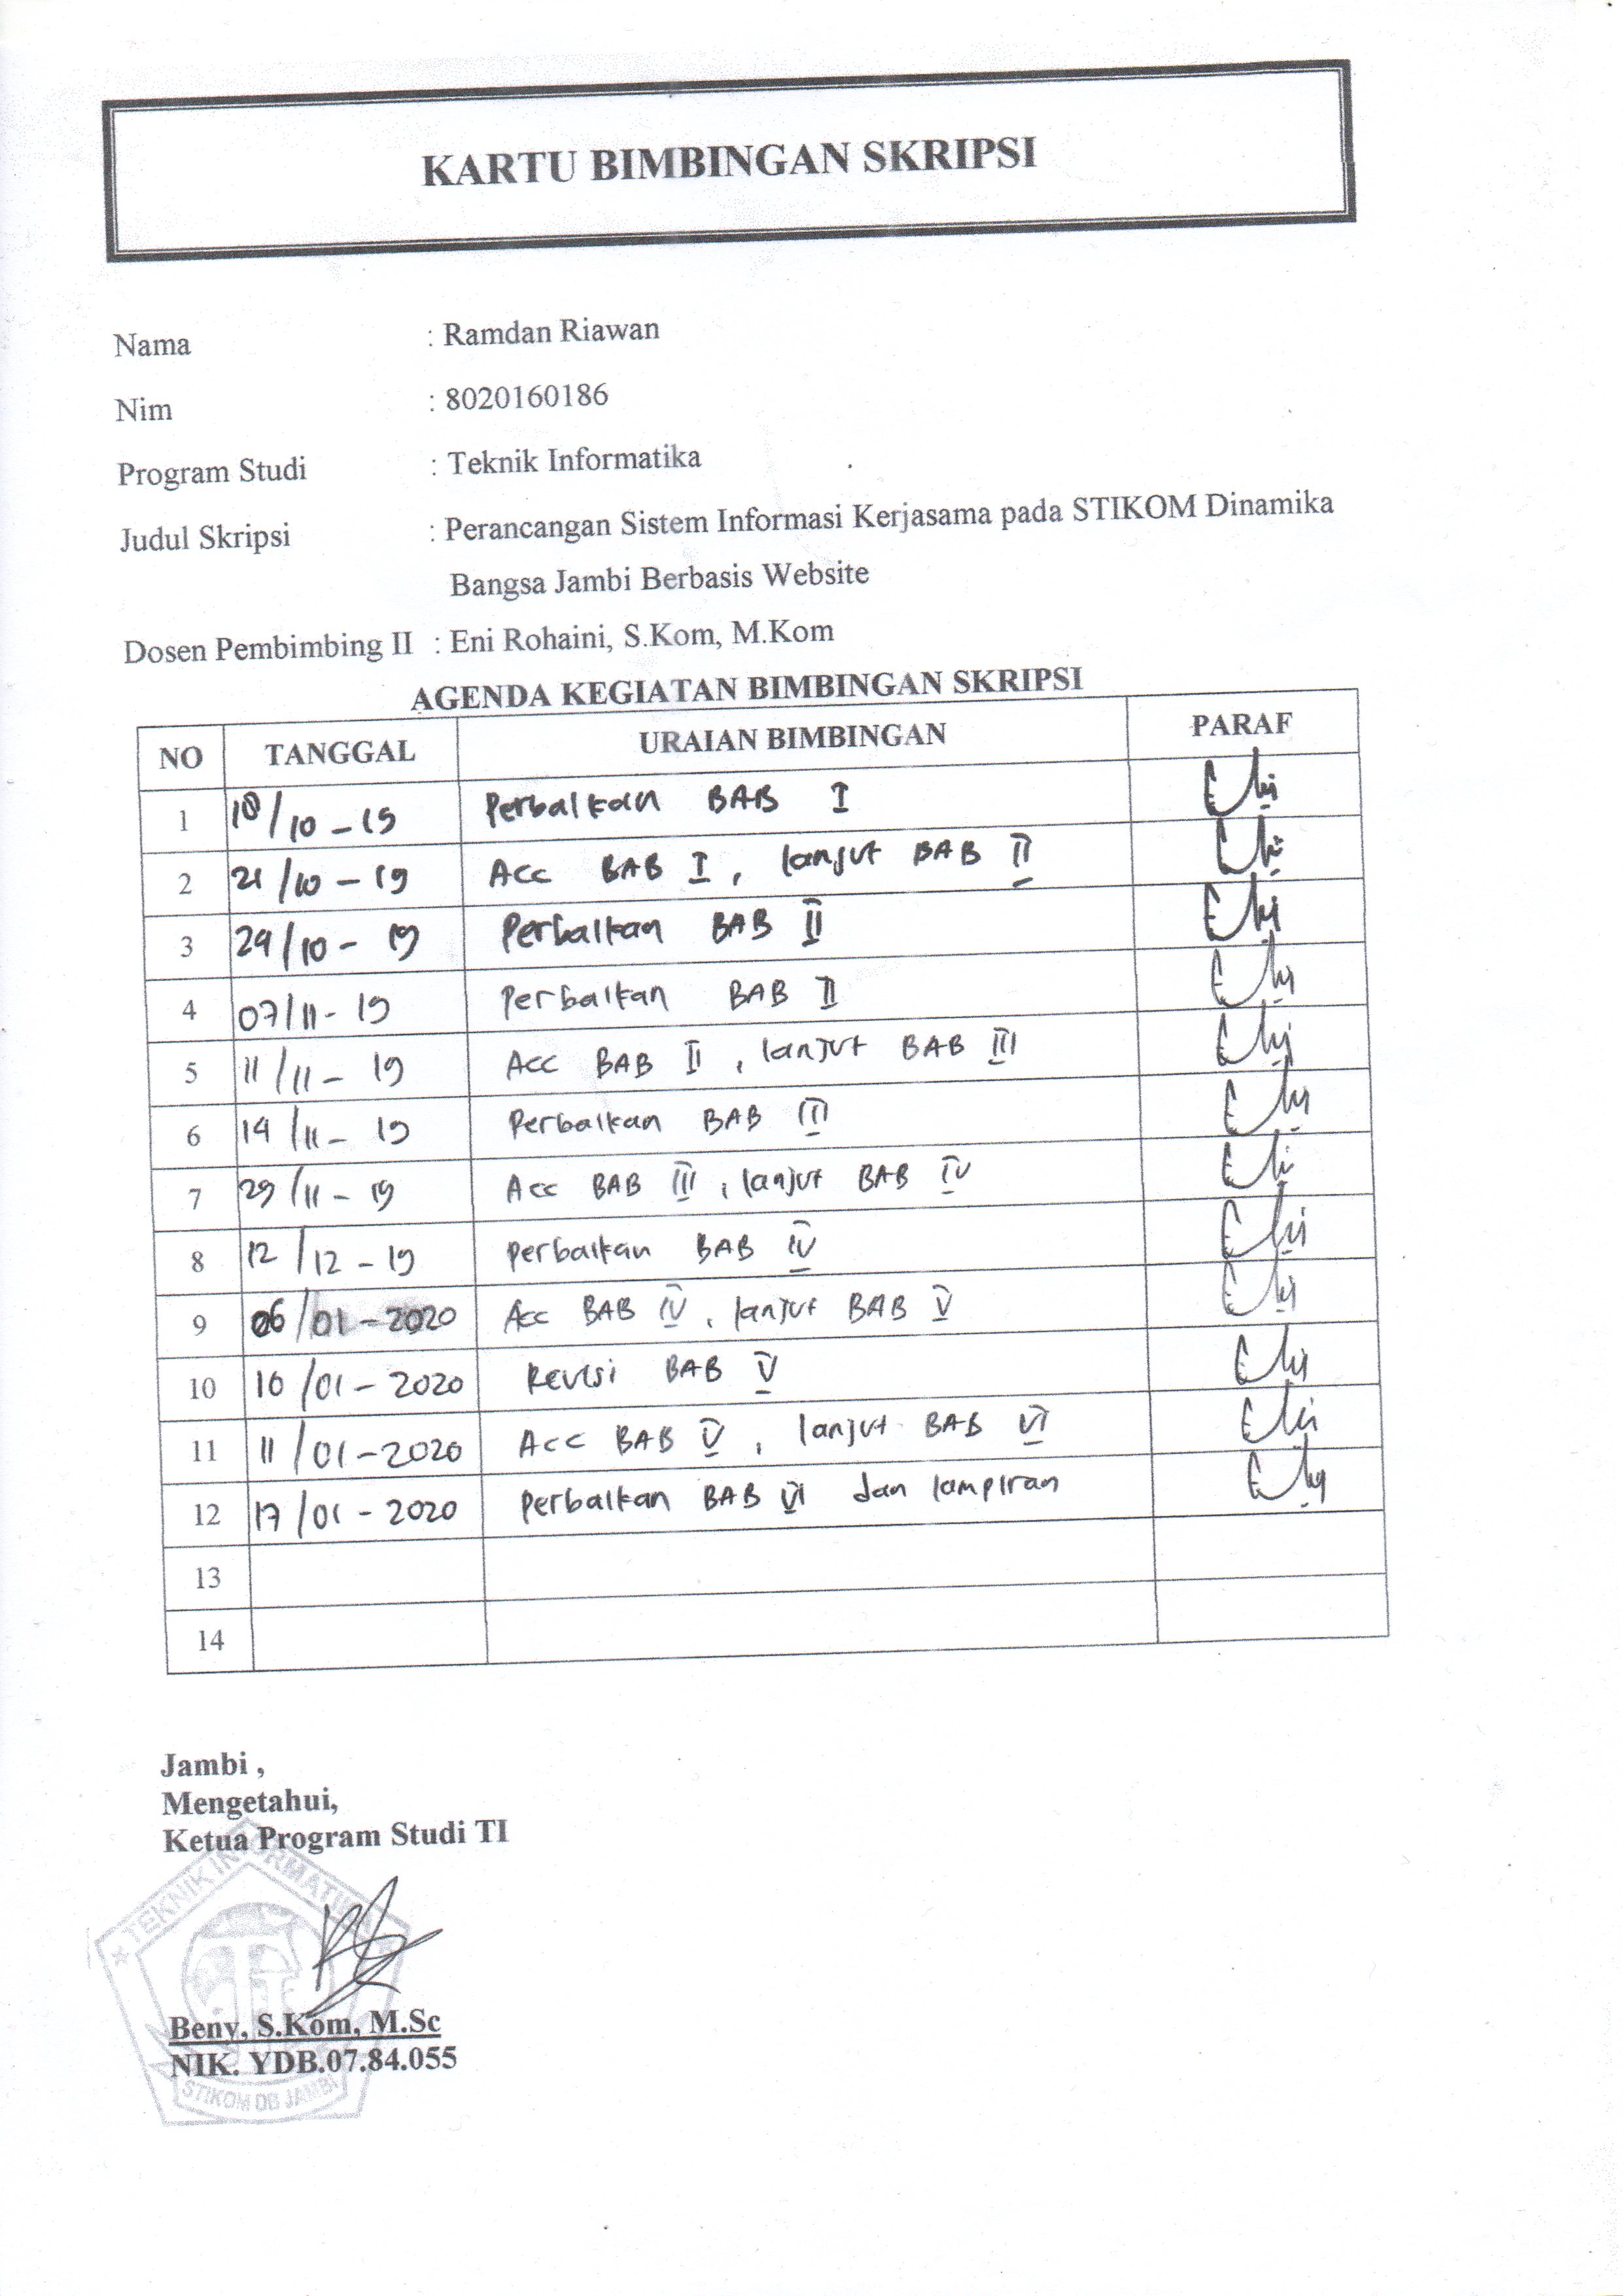 KARTU BIMBINGAN SKRIPSI
Nama : Ramdan Riawan
Nim : 8020160186
Program Studi : Teknik Informatika
Judul Skripsi : Perancangan Sistem Informasi Kerjasama pada STIKOM Dinamika
Bangsa Jambi Berbasis Website
Dosen Pembimbing II : Eni Rohaini, S.Kom, M.Kom
AGENDA KEGIATAN BIMBINGAN SKRIPSI
NO TANGGAL URAIAN BIMBINGAN PARAF
1 18/10-19 Perbaikan BAB I
2 21/10-19 Acc BAB I, lanjut BAB II
3 29/10-19 Perbaikan BAB II
4 07/11-19 Perbaikan BAB II
5 11/11-19 Acc BAB II, lanjut BAB III
6 14/11-19 Perbaikan BAB III
7 29/11-19 Acc BAB III, lanjut BAB IV
8 12/12-19 Perbaikan BAB IV
9 06/01-2020 Acc BAB IV, lanjut BAB V
10 10/01-2020 Revisi BAB V
11 11/01-2020 Acc BAB V, lanjut BAB VI
12 17/01-2020 Perbaikan BAB VI dan lampiran
13
14
Jambi ,
Mengetahui,
Ketua Program Studi TI
TEKNIK INFORMATIKA
Beny, S.Kom, M.Sc
NIK. YDB.07.84.055
STIKOM DB JAMBI